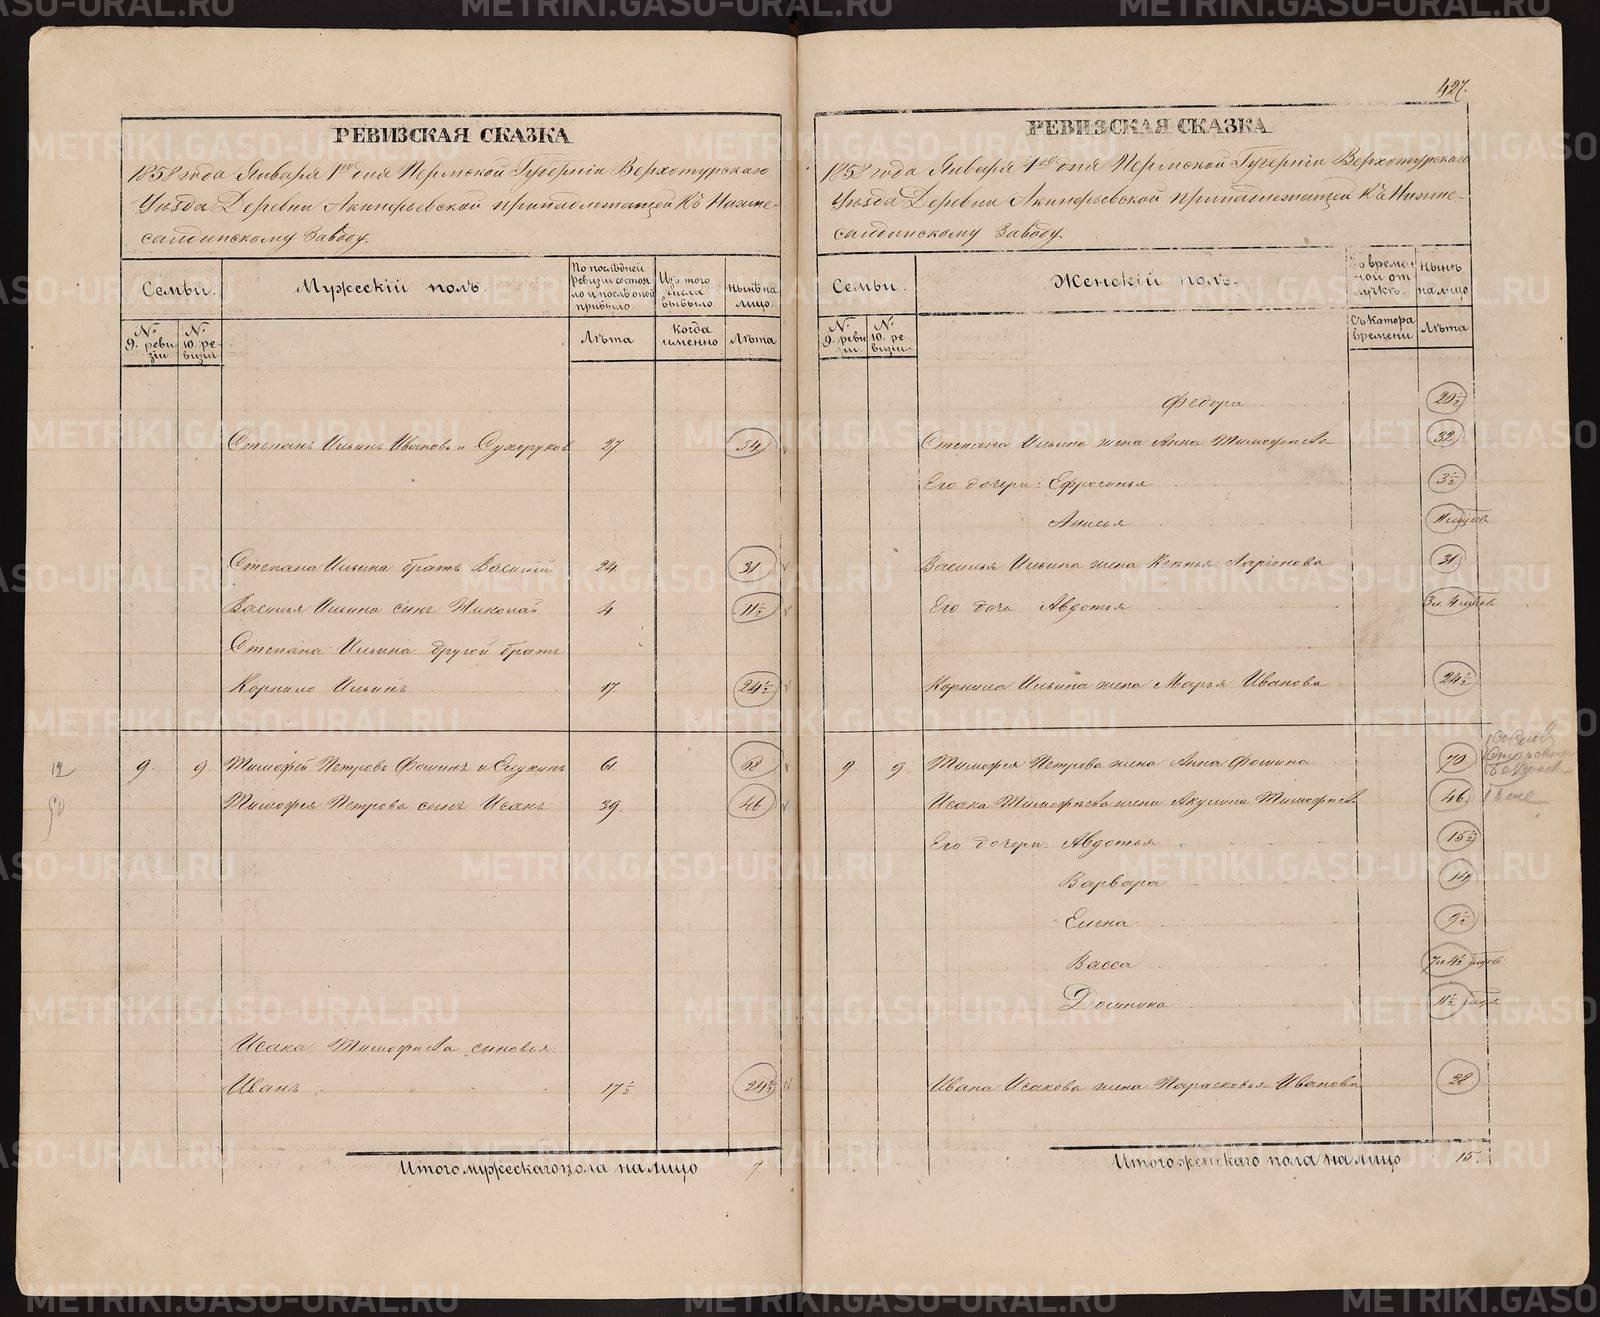 427.
РЕВИЗСКАЯ СКАЗКА
1858 года Января 1го дня Пермской Губерніи Верхотурскаго
Уѣзда Деревни Акинфьевской принадлежащей Къ Нижне-
салдинскому Заводу.
Семьи.
Мужескій полъ.
По послѣдней ревизіи состояло и послѣ оной прибыло
Изъ того числа выбыло
Нынѣ на лицо.
№ 9. ревизіи
№ 10. ревизіи
Лѣта
Когда именно
Лѣта
Степанъ Ильинъ Ивановъ и Сухоруковъ 27 34
Степана Ильина братъ Василій 24 31
Василья Ильина сынъ Николай 4 11½
Степана Ильина другой братъ
Корнило Ильинъ 17. 24½
12 9. 9. Тимофей Петровъ Фошинъ и 61 68
Тимофея Петрова сынъ Исакъ 39. 46
Исака Тимофѣева сыновья:
Иванъ 17½ 24½
Итого мужескаго пола на лицо 7
РЕВИЗСКАЯ СКАЗКА
1858 года Января 1го дня Пермской Губерніи Верхотурскаго
Уѣзда Деревни Акинфьевской принадлежащей Къ Нижне-
салдинскому Заводу.
Семьи.
Женскій полъ.
Во временной отлучкѣ.
Нынѣ на лицо
№ 9. ревизіи.
№ 10. ревизіи.
Съ котора времени
Лѣта
Федора 20½
Степана Ильина жена Анна Тимофѣева 32
Его дочери: Ефросинья 3½
Анисья 11 мѣсяцовъ
Василья Ильина жена Ксенья Ларіонова 31
Его дочь Авдотья 3 и 4 мѣсяцовъ
Корнила Ильина жена Марья Иванова 24½
9 9. Тимофея Петрова жена Анна Фошина 70
Исака Тимофѣева жена Акулина Тимофѣева 46.
Его дочери: Авдотья 15½
Варвара 14
Елена 9½
Васса 7 и 4½ мѣсяцовъ
Домника 11½ мѣсяцовъ
Ивана Исакова жена Парасковья Иванова 28
Итого женскаго пола на лицо 15.
METRIKI.GASO-URAL.RU